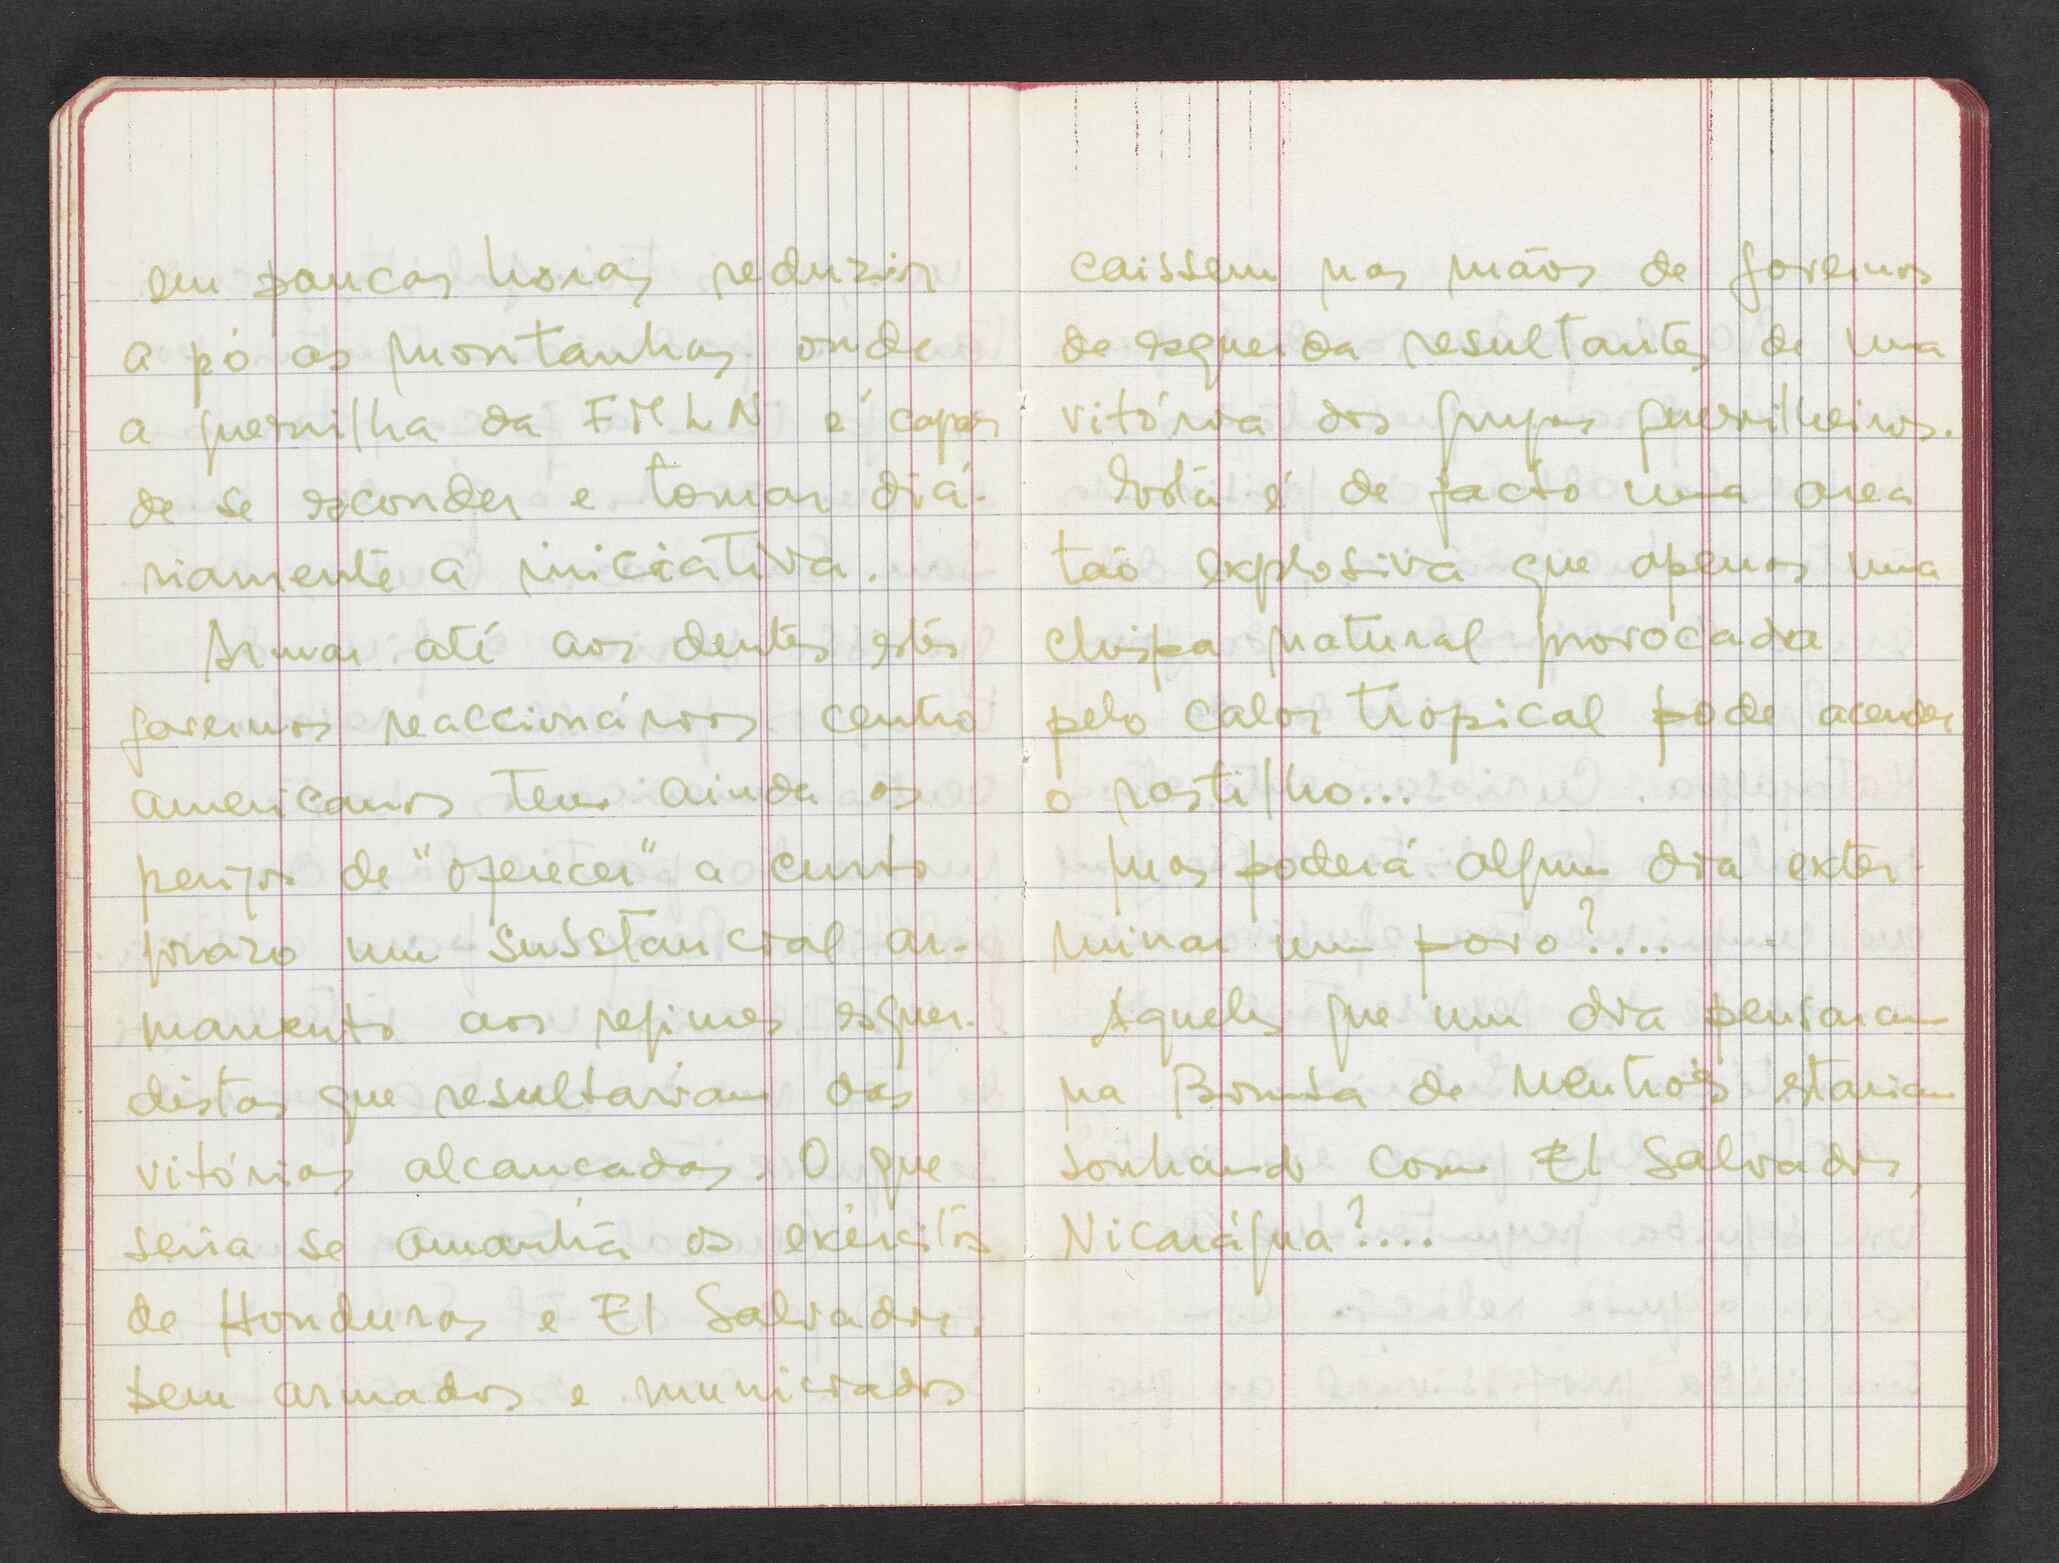 em poucas horas reduzir
a pó as montanhas onde
a guerrilha da FMLN é capaz
de se esconder e tomar diá-
riamente a iniciativa.
Armar até aos dentes estes
governos reaccionários centro
americanos tem ainda os
perigos de "oferecer" a curto
prazo um substancial ar-
mamento aos regimes esquer-
distas que resultariam das
vitórias alcançadas. O que
seria se amanhã os exércitos
de Honduras e El Salvador,
bem armados e municiados
caissem nas mãos de governos
de esquerda resultantes de uma
vitória dos grupos guerrilheiros.
é de facto uma area
tão explosiva que apenas uma
chispa natural provocada
pelo calor tropical pode acender
o rastilho...
Mas poderá algum dia exter-
minar um povo?....
Aqueles que um dia pensaram
na Bomba de Neutrões estariam
sonhando com El Salvador,
Nicarágua?....